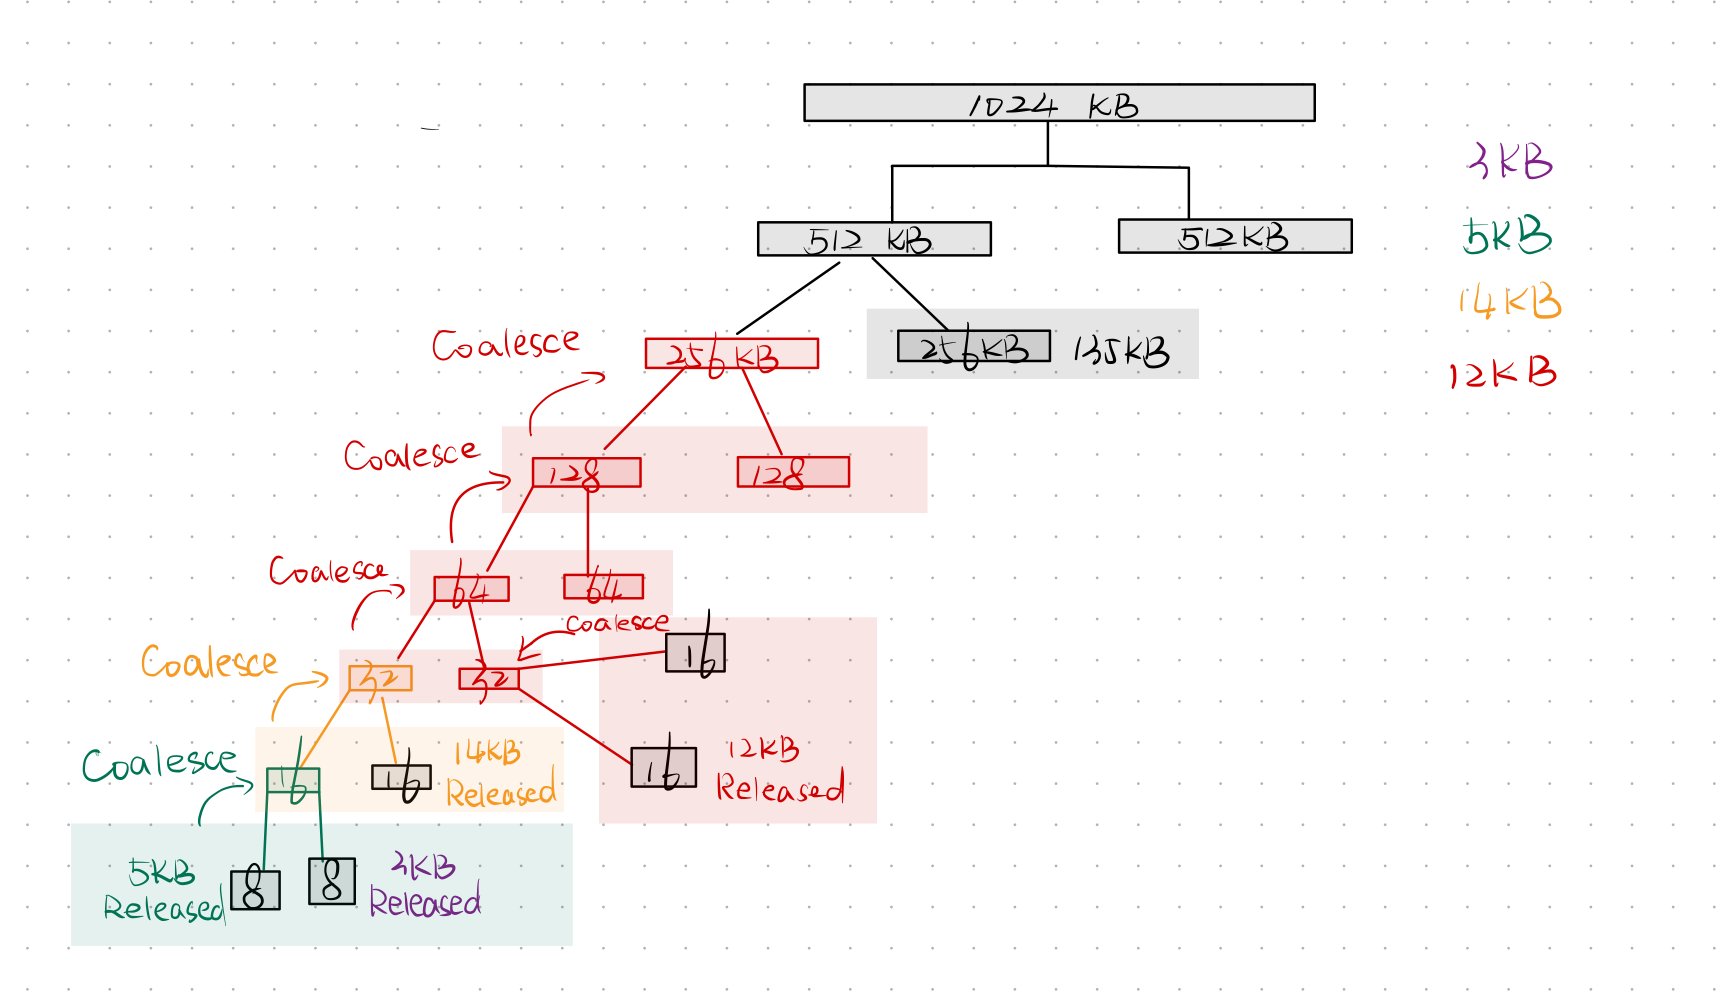 1024 KB
3KB
512 KB
512KB
5KB
14KB
Coalesce
256KB
256KB
135KB
12KB
Coalesce
128
128
Coalesce
64
64
Coalesce
16
Coalesce
32
32
Coalesce
16
16
14KB
Released
16
12KB
Released
5KB
Released
8
8
3KB
Released